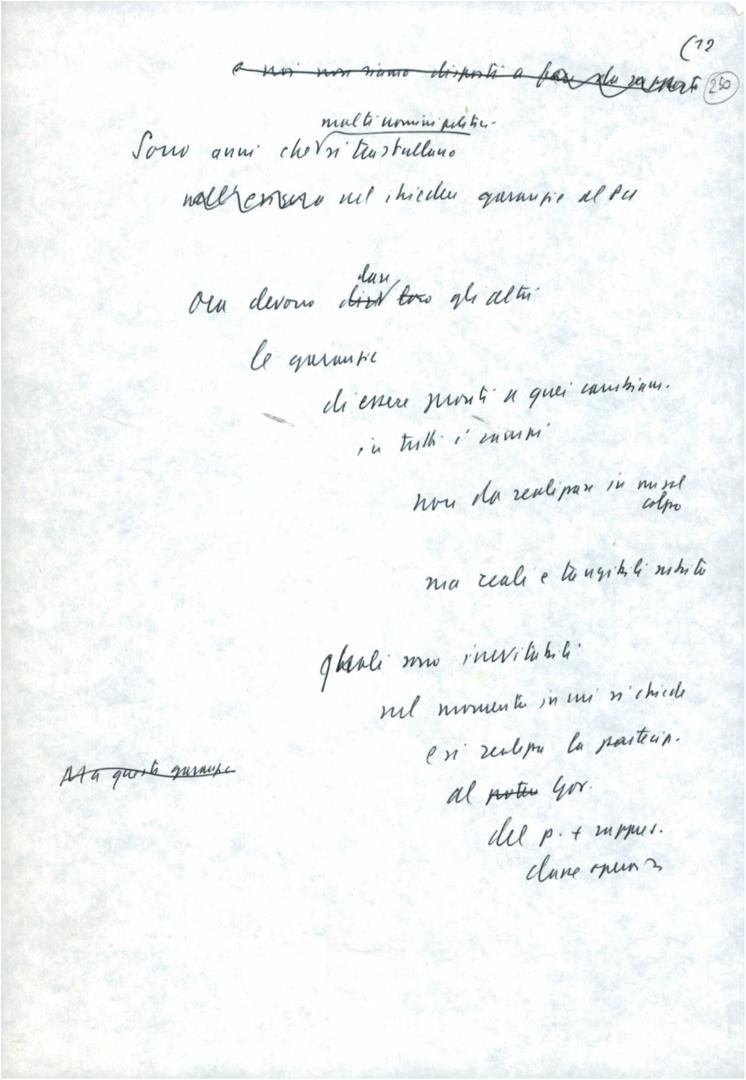 (12
e noi non siamo disposti a fare da supporti
250
molti uomini politici
Sono anni che si trastullano
nell'essere nel chiedere garanzie al PCI
dare
Ora devono dirsi loro gli altri
le garanzie
di essere pronti a quei cambiam.
in tutti i campi
non da realizzare in un sol
colpo
ma reali e tangibili subito
quali sono inevitabili
nel momento in cui si chiede
e si realizza la partecip.
Ma queste garanzie
al potere Gov.
del p. + rappres.
classe operaia